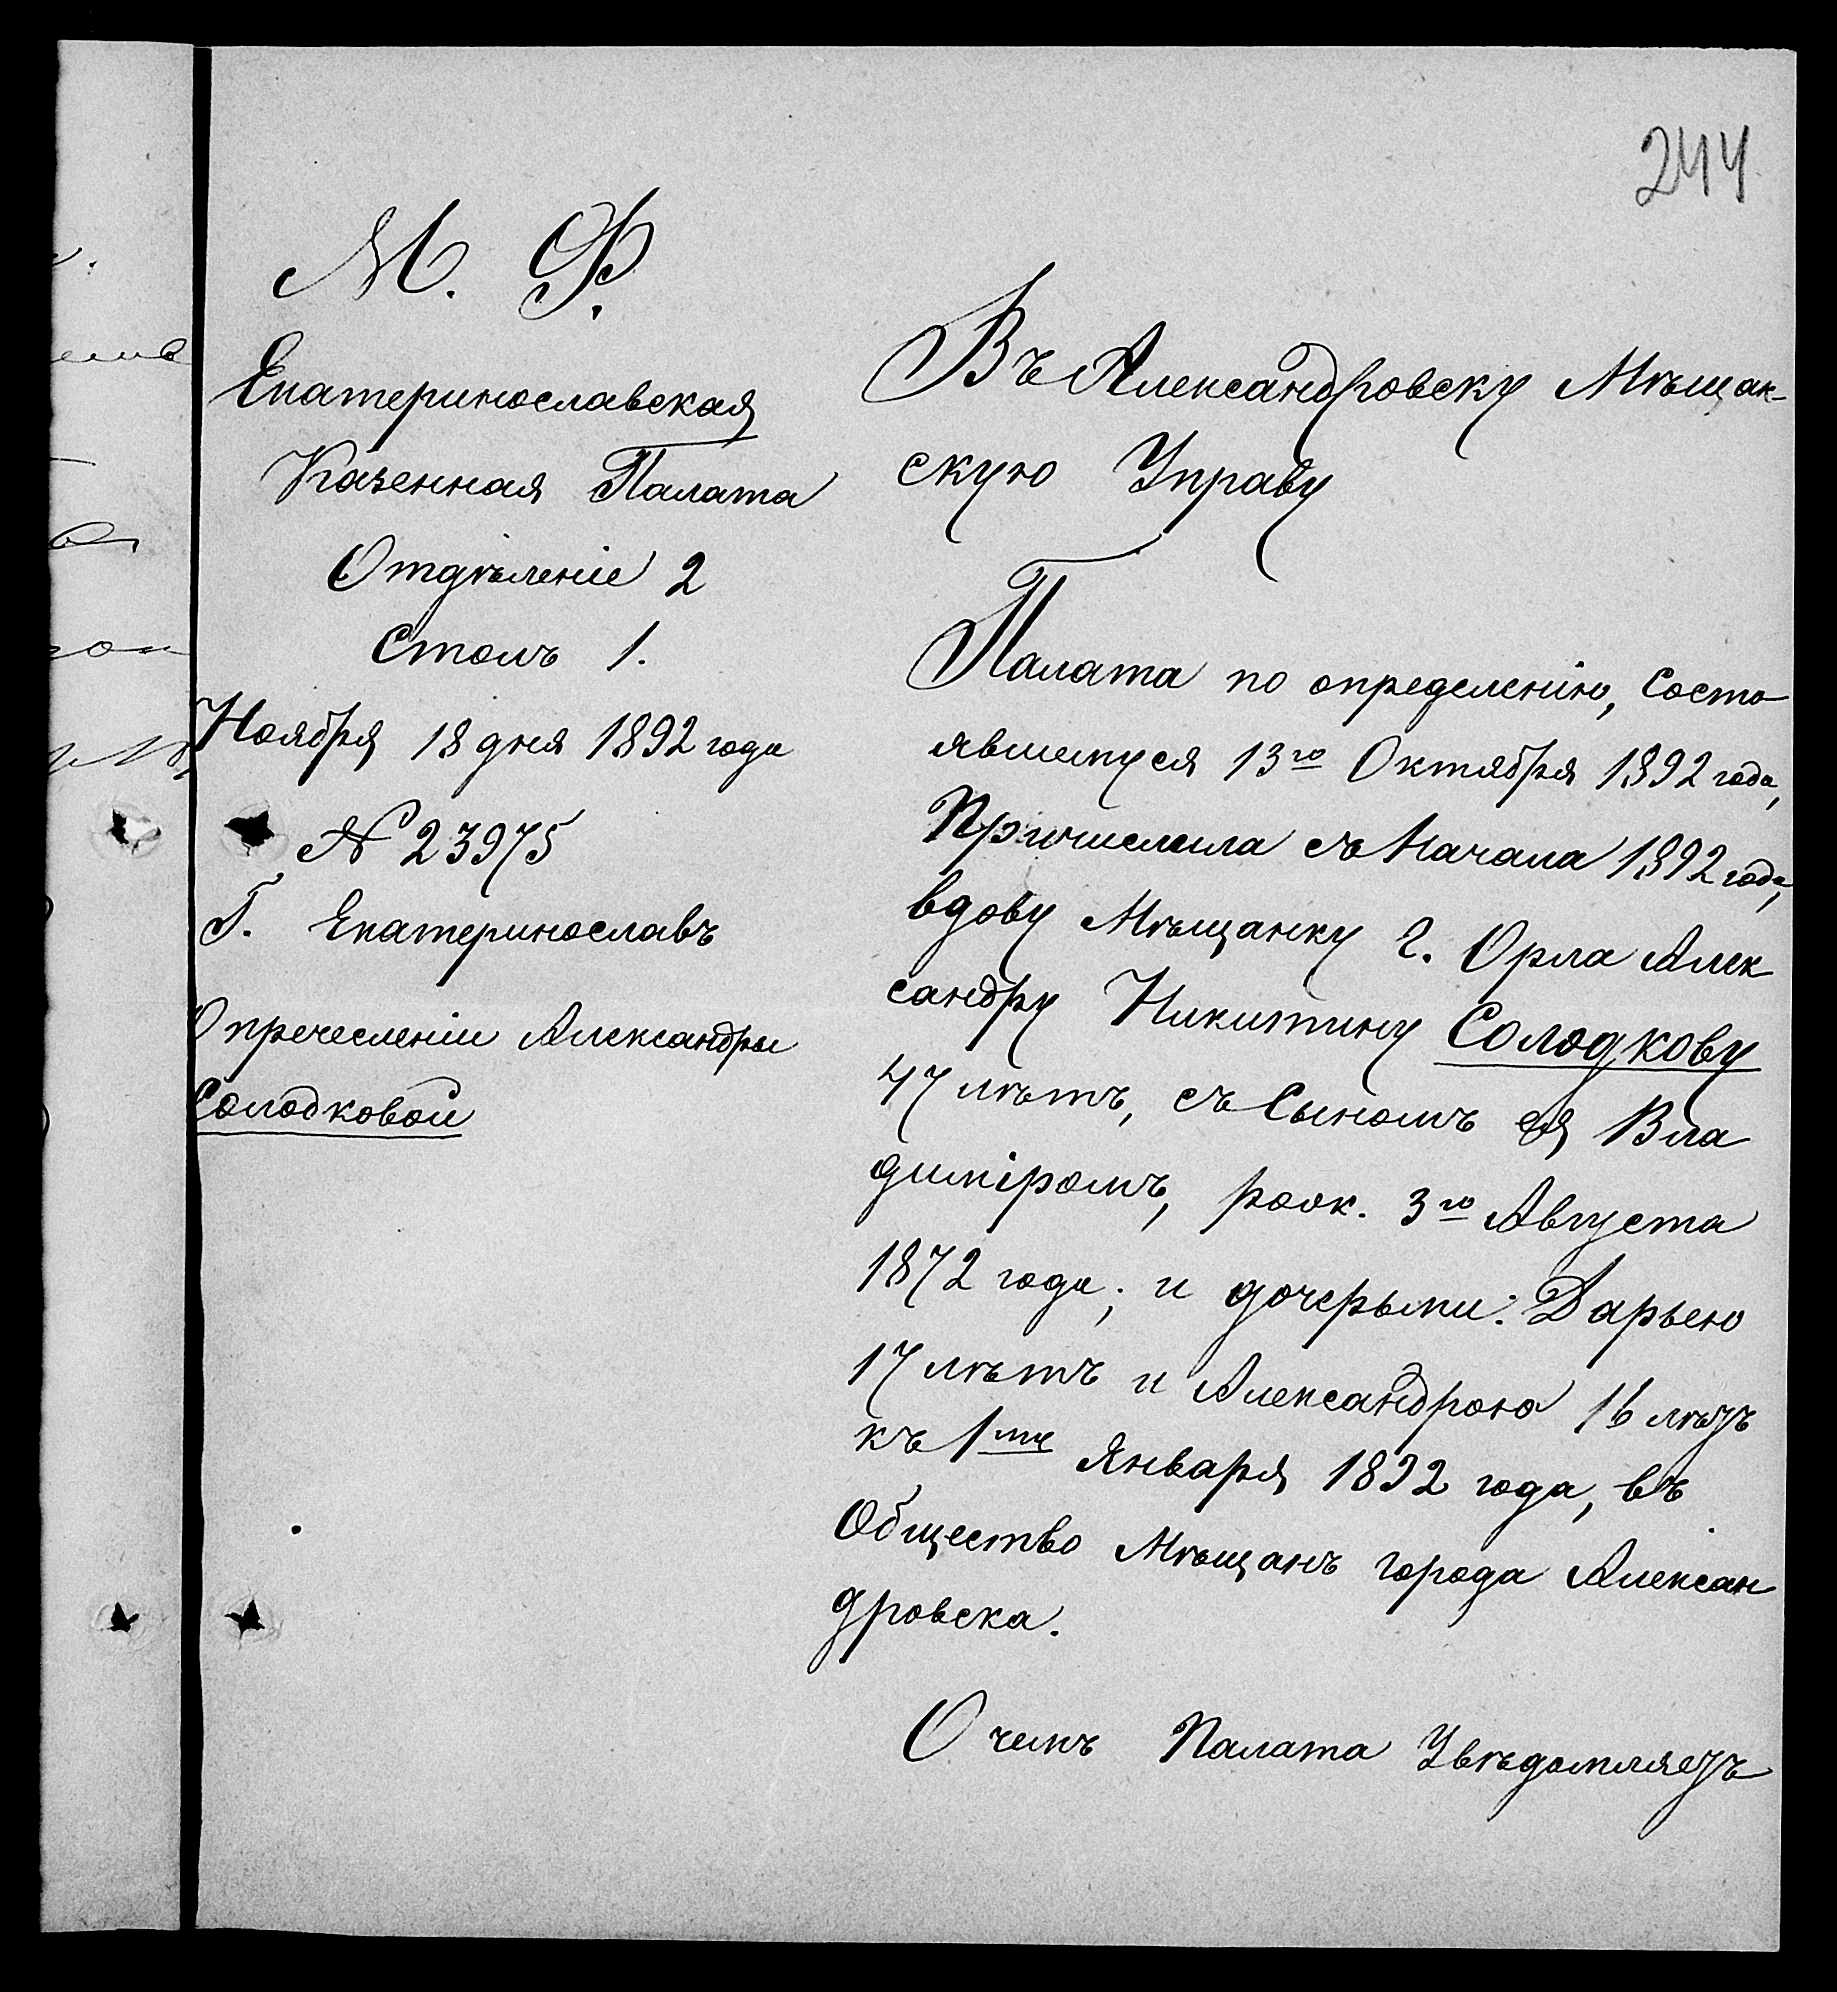 244
М. Ф.
Екатеринославская
Казенная Палата
Отдѣленіе 2
Столъ 1.
Ноября 18 дня 1892 года
№ 23975
Г. Екатеринославъ
О пречесленіи Александры
Солодковой
Въ Александровску Мѣщан-
скую Управу
Палата по определенію, состо
явшемуся 13го Октября 1892 года,
Причислила съ Начала 1892 года,
вдову Мѣщанку г. Орла Алек
сандру Никитину Солодкову
47 лѣтъ, съ Сыномъ ея Вла
димiромъ, рож. 3го Августа
1872 года; и дочерьми: Дарьею
17 лѣтъ и Александрою 16 лѣтъ
къ 1му Января 1892 года, въ
Общество Мѣщанъ города Алексан
дровска.
О чемъ Палата Увѣдомляетъ